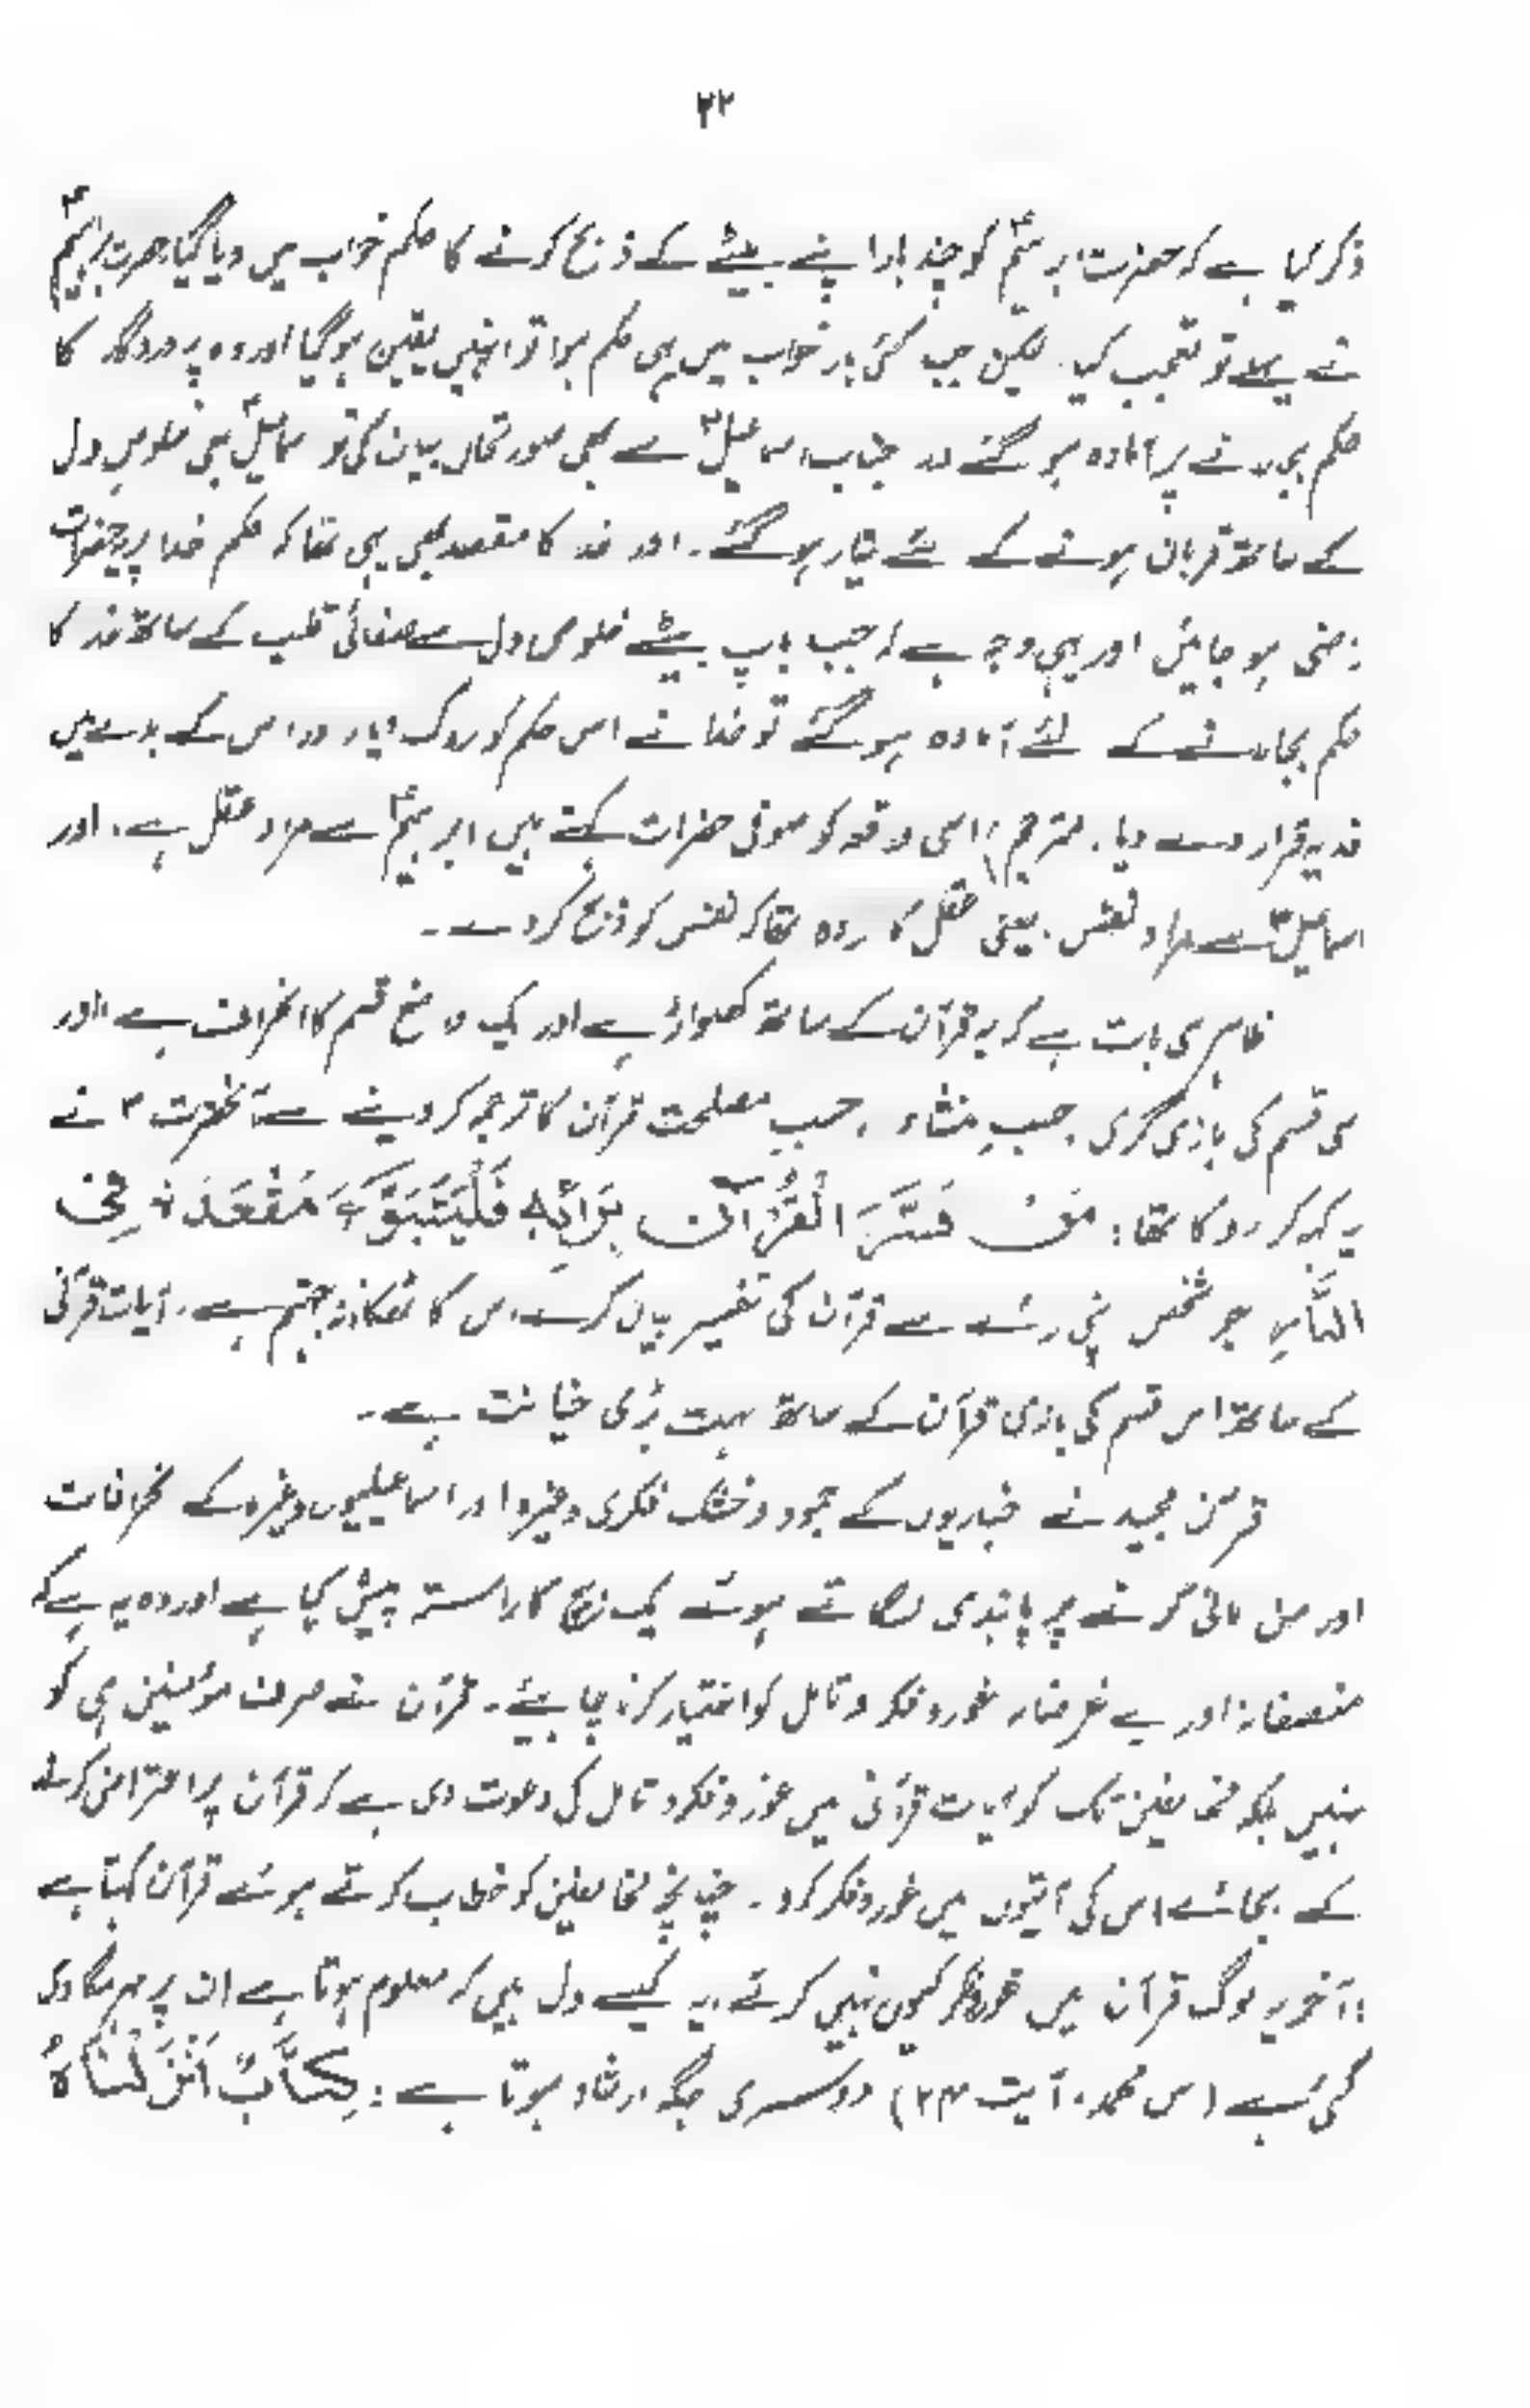 ۲۲
ذکر کیا ہے کہ حضرت ابراہیمؑ کو چند بار اپنے بیٹے کے ذبح کرنے کا حکم خواب میں دیا گیا حضرت ابراہیمؑ
نے پہلے تو تعجب کیا. لیکن جب کئی بار خواب میں یہی حکم ہوا تو انہیں یقین ہو گیا اور وہ پروردگار کا
حکم بجا لانے پر آمادہ ہو گئے اور جناب اسماعیلؑ سے بھی صورتحال بیان کی تو اسماعیلؑ بھی خلوصِ دل
کے ساتھ قربان ہونے کے لئے تیار ہو گئے۔ اور خدا کا مقصد بھی یہی تھا کہ حکم خدا پر یہ حضرات
راضی ہو جائیں اور یہی وجہ ہے کہ جب باپ بیٹے خلوص دل سے صفائی قلب کے ساتھ خدا کا
حکم بجا لانے کے لئے آمادہ ہو گئے تو خدا نے اس حکم کو روک دیا۔ اور اس کے بدلے میں
فدیہ قرار دے دیا. مترجم) اسی واقعہ کو صوفی حضرات کہتے ہیں ابراہیمؑ سے مراد عقل ہے، اور
اسماعیلؑ سے مراد نفس. یعنی عقل کا ارادہ تھا کہ نفس کو ذبح کر دے۔
ظاہر سی بات ہے کہ یہ قرآن کے ساتھ کھلواڑ ہے اور ایک واضح قسم کا انحراف ہے، اور
اسی قسم کی بازی گری، حسبِ منشاء، حسبِ مصلحت قرآن کا ترجمہ کر دینے سے آنحضرت ؐ نے
یہ کہہ کر روکا تھا: مَنْ فَسَّرَ الْقُرْآنَ بِرَائِهٖ فَلْیَتَبَوَّءْ مَقْعَدَہٗ فِی
النَّارِ جو شخص اپنی رائے سے قرآن کی تفسیر بیان کرے اس کا ٹھکانہ جہنم ہے. آیات قرآنی
کے ساتھ اس قسم کی بازی قرآن کے ساتھ بہت بڑی خیانت ہے۔
قرآن مجید نے اخباریوں کے جمود و خشک فکری وغیرہ اور اسماعیلیوں وغیرہ کے انحرافات
اور من مانی کرنے پر پابندی لگاتے ہوئے ایک بیچ کا راستہ پیش کیا ہے اور وہ یہ ہے کہ
منصفانہ اور بے غرضانہ غور و فکر و تامل کو اختیار کرنا چاہیئے۔ قرآن نے صرف مؤمنین ہی کو
نہیں بلکہ مخالفین تک کو آیات قرآنی میں غور و فکر و تامل کی دعوت دی ہے کہ قرآن پر اعتراض کرنے
کے بجائے اس کی آیتوں میں غور و فکر کرو۔ چنانچہ مخالفین کو خطاب کرتے ہوئے قرآن کہتا ہے
: آخر یہ لوگ قرآن میں غور و فکر کیوں نہیں کرتے، یہ کیسے دل ہیں کہ معلوم ہوتا ہے ان پر مہر لگا دی
گئی ہے (س محمد، آیت ۲۴) دوسری جگہ ارشاد ہوتا ہے: کِتَابٌ اَنْزَلْنَاہُ